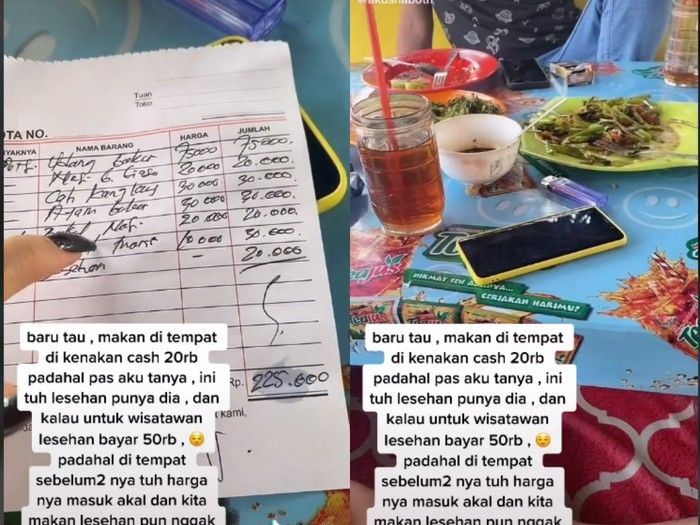 Tuan
Toko
OTA NO.
YAKNYA NAMA BARANG HARGA JUMLAH
Udang bakar 75000 75.000.
Nasi 20000 20.000.
Cah Kangkung 30 000 30.000.
Ayam bakar 30 000 30.000.
Nasi 20.000 20.000.
10 000 30.000.
Lesehan - 20.000
Rp. 225.000
kami,
baru tau , makan di tempat
di kenakan cash 20rb
padahal pas aku tanya , ini
tuh lesehan punya dia , dan
kalau untuk wisatawan
lesehan bayar 50rb , 😌
padahal di tempat
sebelum2 nya tuh harga
nya masuk akal dan kita
makan lesehan pun nggak
erakusnaboth
HIKMAT TEH
CERIAKAN HARIMU!
baru tau , makan di tempat
di kenakan cash 20rb
padahal pas aku tanya , ini
tuh lesehan punya dia , dan
kalau untuk wisatawan
lesehan bayar 50rb , 😌
padahal di tempat
sebelum2 nya tuh harga
nya masuk akal dan kita
makan lesehan pun nggak